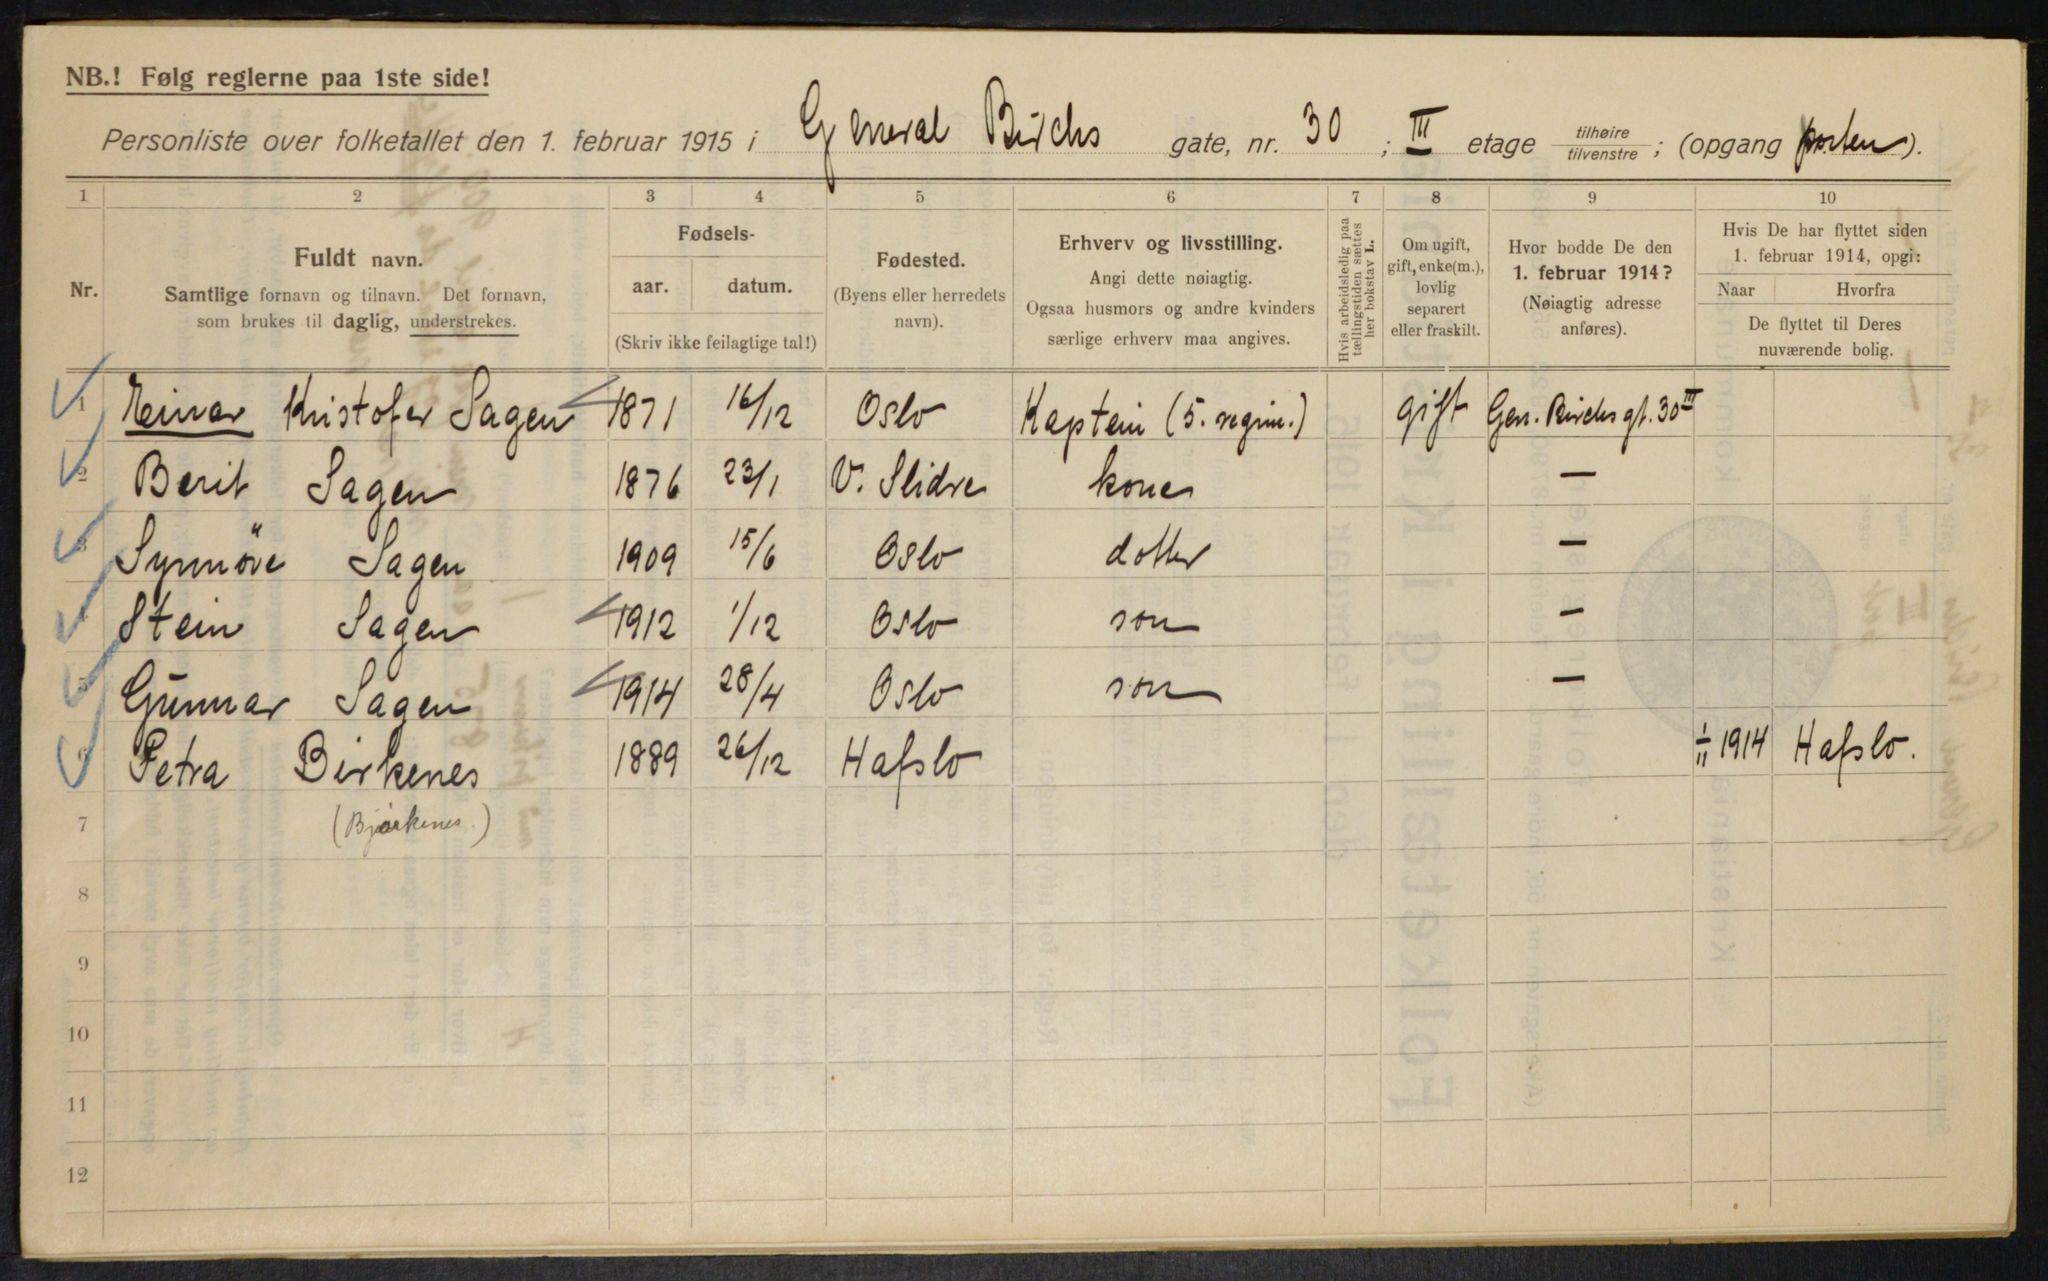 NB.! Følg reglerne paa 1ste side!
Personliste over folketallet den 1. februar 1915 i General Birchs gate, nr. 30 ; III etage tilhøire tilvenstre ; (opgang porten).
1 2 3 4 5 6 7 8 9 10
Nr.
Fuldt navn.
Samtlige fornavn og tilnavn. Det fornavn,
som brukes til daglig, understrekes.
Fødsels-
aar. datum.
(Skriv ikke feilagtige tal!)
Fødested.
(Byens eller herredets
navn).
Erhverv og livsstilling.
Angi dette nøiagtig.
Ogsaa husmors og andre kvinders
særlige erhverv maa angives.
Hvis arbeidsledig paa
tællingstiden sættes
her bokstav L.
Om ugift,
gift, enke(m.),
lovlig
separert
eller fraskilt.
Hvor bodde De den
1. februar 1914?
(Nøiagtig adresse
anføres).
Hvis De har flyttet siden
1. februar 1914, opgi:
Naar Hvorfra
De flyttet til Deres
nuværende bolig.
1 Einar Kristofer Sagen 1871 16/12 Oslo Kaptein (5. regim.) gift Gen. Birchs gt. 30 III
2 Berit Sagen 1876 23/1 V. Slidre kone —
3 Synnöve Sagen 1909 15/6 Oslo dotter —
4 Stein Sagen 1912 1/12 Oslo son —
5 Gunnar Sagen 1914 28/4 Oslo son —
6 Petra Birkenes 1889 26/12 Hafslo 1/11 1914 Hafslo.
7 (Bjørkenes.)
8
9
10
11
12